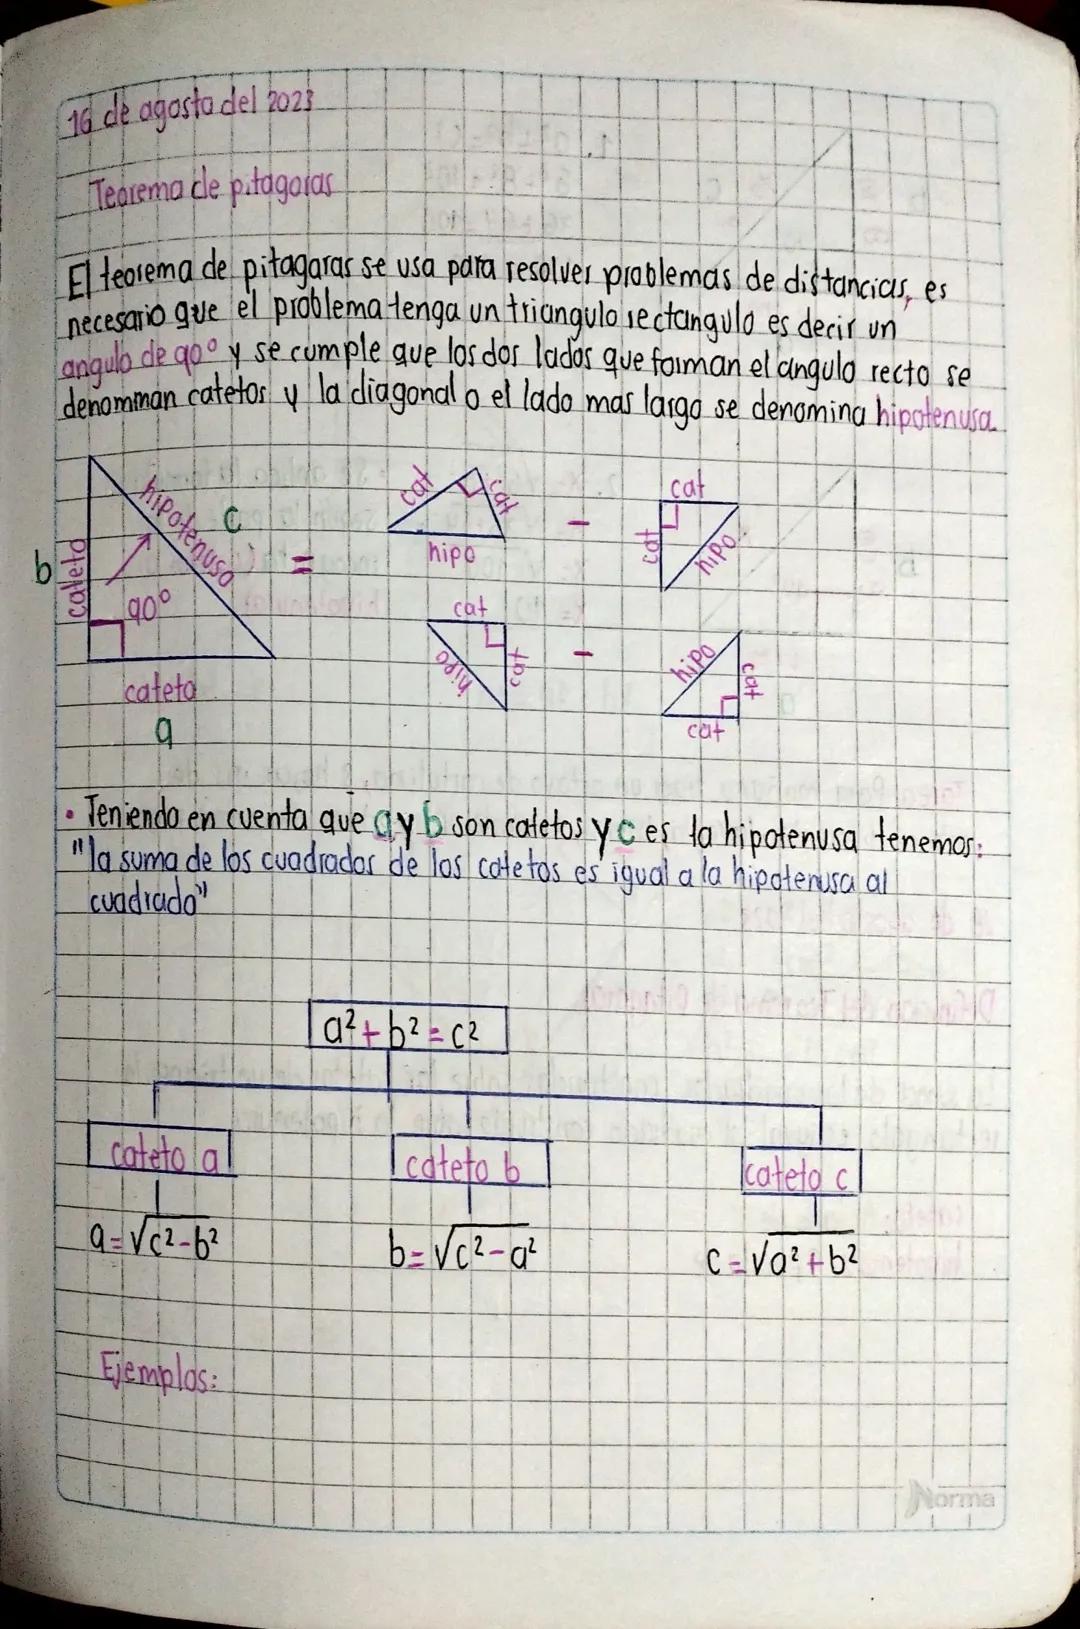 16 de agosto del 2023
Teorema de pitagoras
El teorema de pitagaras se usa para resolver problemas de distancias, es
necesario que el problema tenga un triangulo rectangulo es decir un
angulo de 90° y se cumple que los dos lados que forman el angulo recto se
denomman catetos y la diagonal o el lado mas largo se denomina hipotenusa
hipotenusa
c
b
cateto
90°
cateto
a
=
cat
cat
hipo
-
cat
cat
hipo
cat
cat
hipo
-
hipo
cat
cat
• Teniendo en cuenta que a y b son catetos y c es la hipotenusa tenemos:
"la suma de los cuadrados de los catetos es igual a la hipotenusa al
cuadrado"
a² + b² = c²
cateto a
cateto b
cateto c
a = √c² - b²
b = √c² - a²
c = √a² + b²
Ejemplos:
Norma